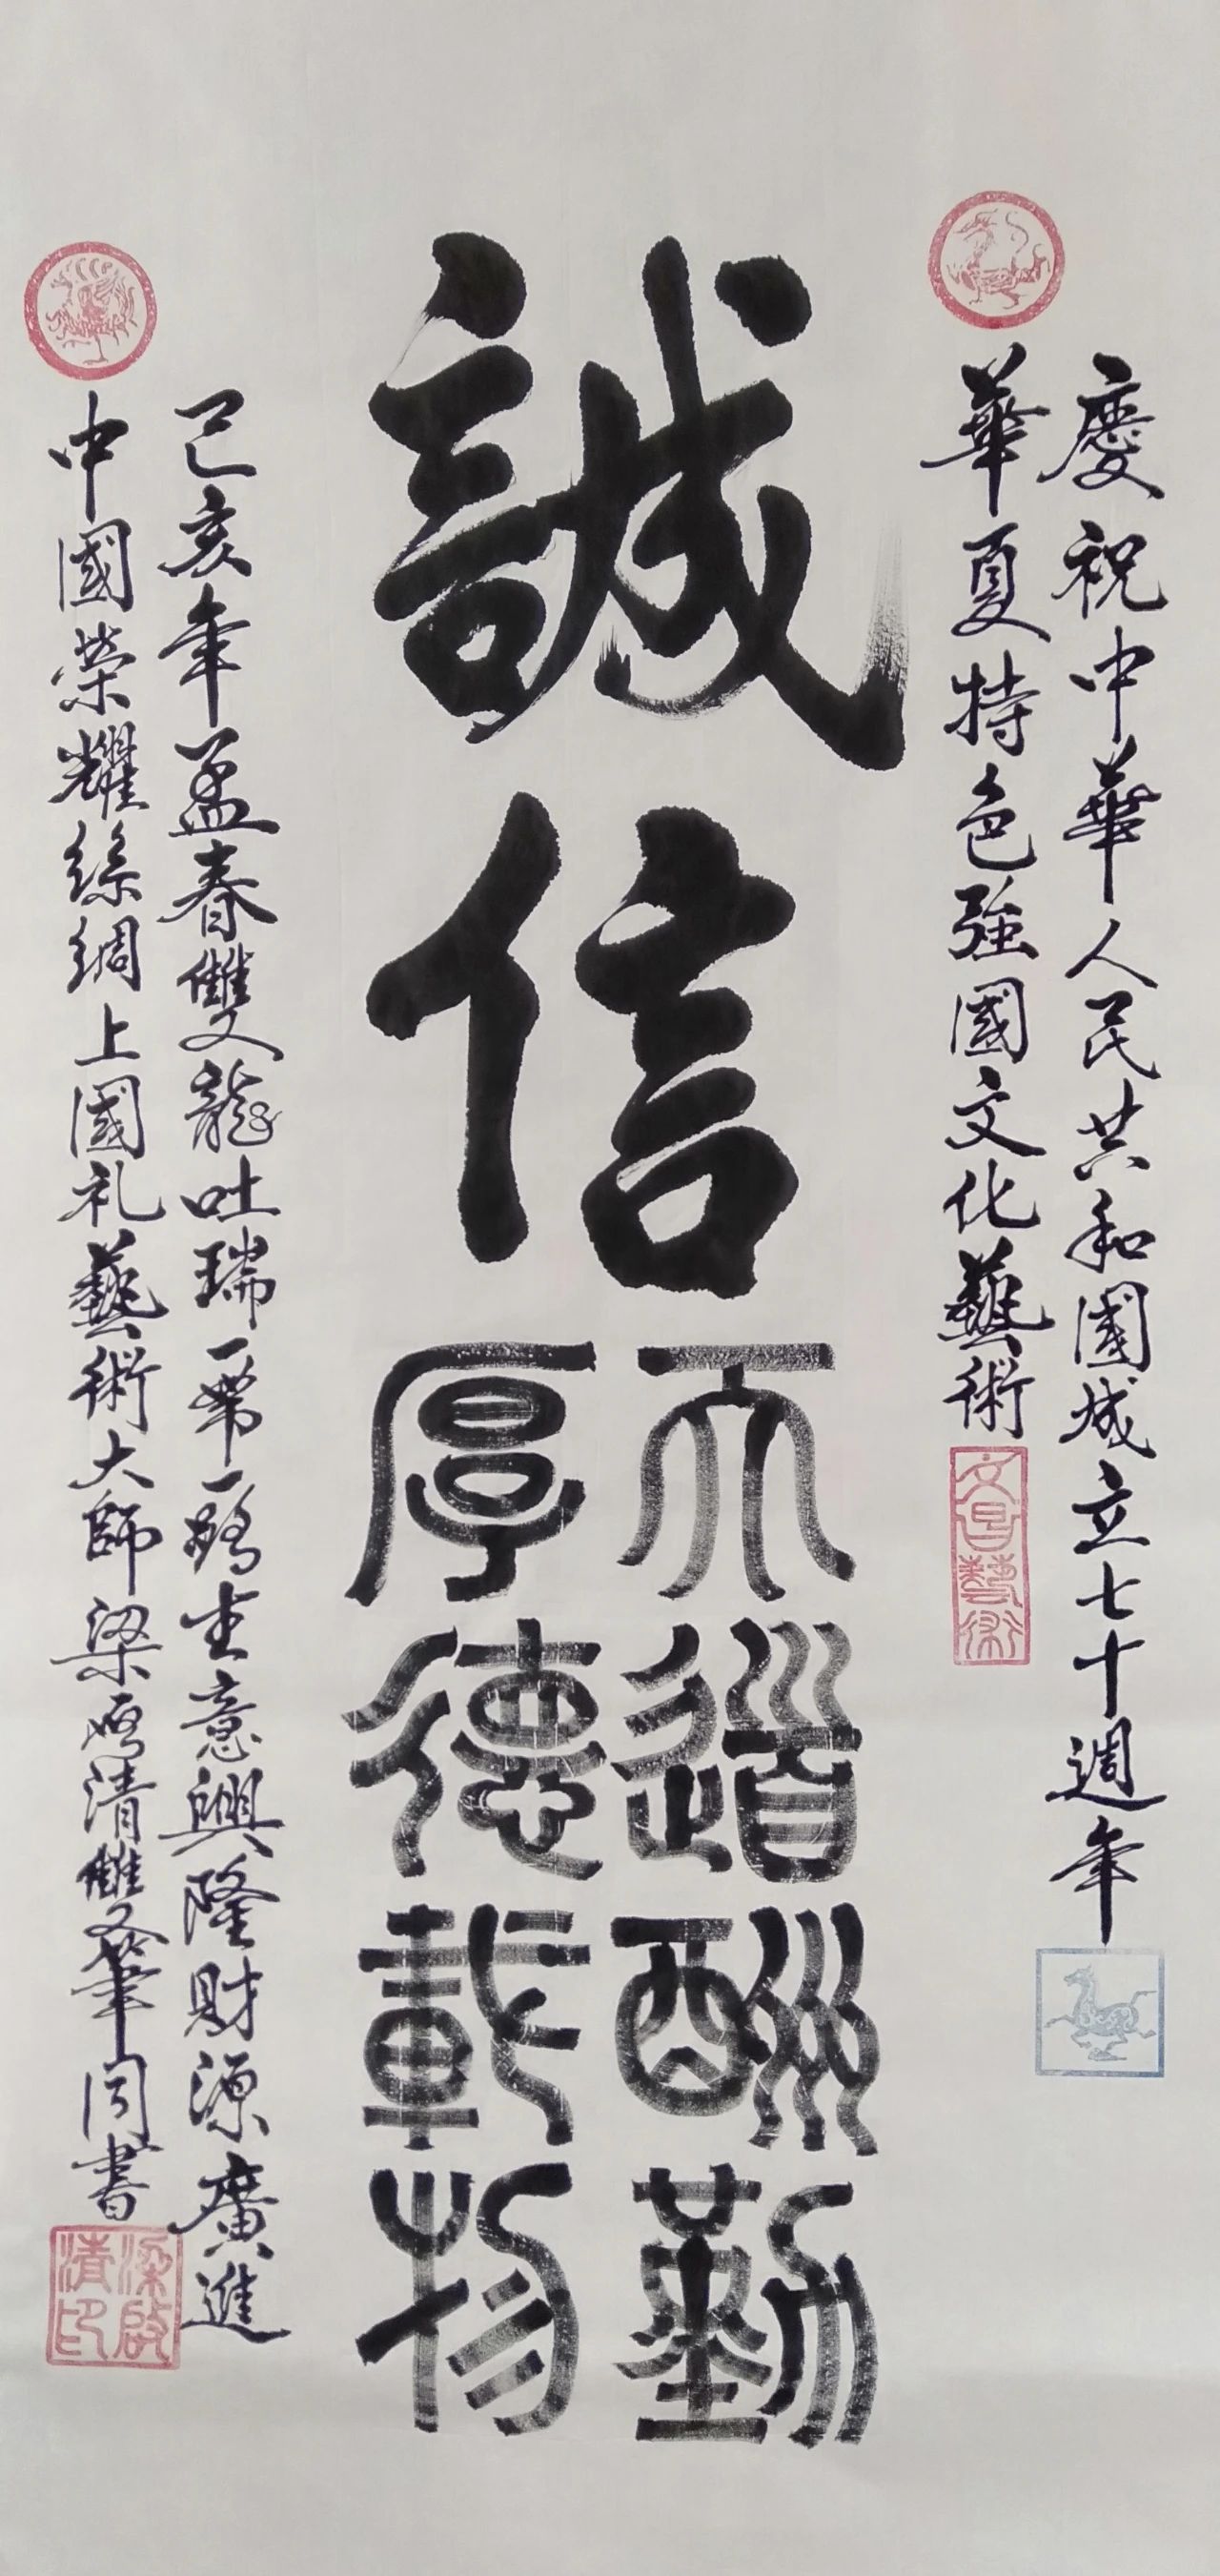 慶祝中華人民共和國成立七十週年
華夏特色強國文化藝術
文昌藝術
誠信
天道酬勤
厚德載物
己亥年孟春雙龍吐瑞一筆一鵝生意興隆財源廣進
中國榮耀絲綢上國礼藝術大師梁啟清雙筆同書
梁啟清印